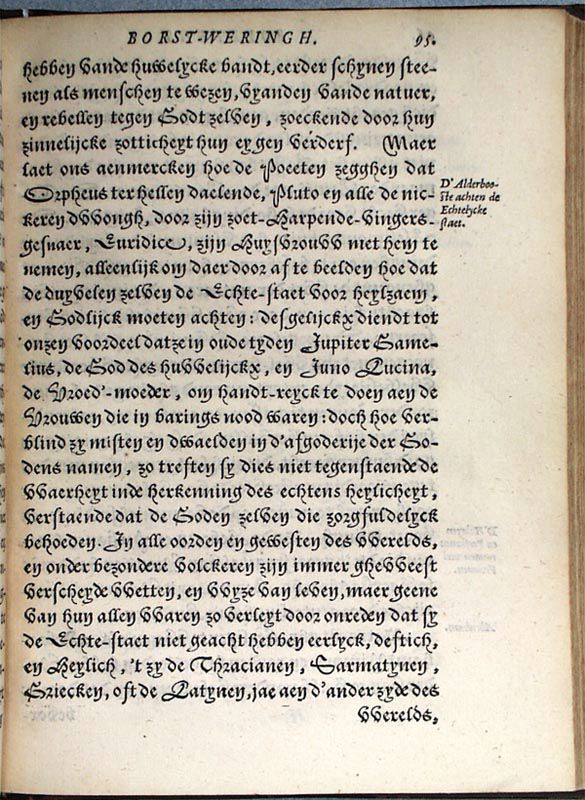 BORST-WERINGH. 95.
hebben vande huwelycke bandt, eerder schynen stee-
nen als menschen te wezen, vyanden vande natuer,
en rebellen tegen Godt zelven, zoeckende door hun
zinnelijcke zotticheyt hun eygen verderf. Maer
laet ons aenmercken hoe de Poeeten zegghen dat
Orpheus ter hellen daelende, Pluto en alle de nic-
keren dvvongh, door zijn zoet-Harpende-vingers-
gesnaer, Euridice, zijn Huysvrouvv met hem te
nemen, alleenlijk om daer door af te beelden hoe dat
de duyvelen zelven de Echte-staet voor heylzaem,
en Godlijck moeten achten: desgelijckx diendt tot
onzen voordeel datze in oude tyden Jupiter Game-
lius, de God des huvvelijckx, en Juno Lucina,
de Vroed'-moeder, om handt-reyck te doen aen de
Vrouwen die in barings nood waren: doch hoe ver-
blind zy misten en dwaelden in d'afgoderije der Go-
dens namen, zo treften sy dies niet tegenstaende de
vvaerheyt inde herkenning des echtens heylicheyt,
verstaende dat de Goden zelven die zorgfuldelyck
behoeden. In alle oorden en gewesten des vverelds,
en onder bezondere volckeren zijn immer ghevveest
verscheyde vvetten, en vvyze van leven, maer geene
van hun allen vvaren zo verleyt door onreden dat sy
de Echte-staet niet geacht hebben eerlyck, deftich,
en Heylich, 't zy de Thracianen, Sarmatynen,
Griecken, oft de Latynen, jae aen d'ander zyde des
vverelds,
D'Alderboo-
ste achten de
Echtelycke
staet.